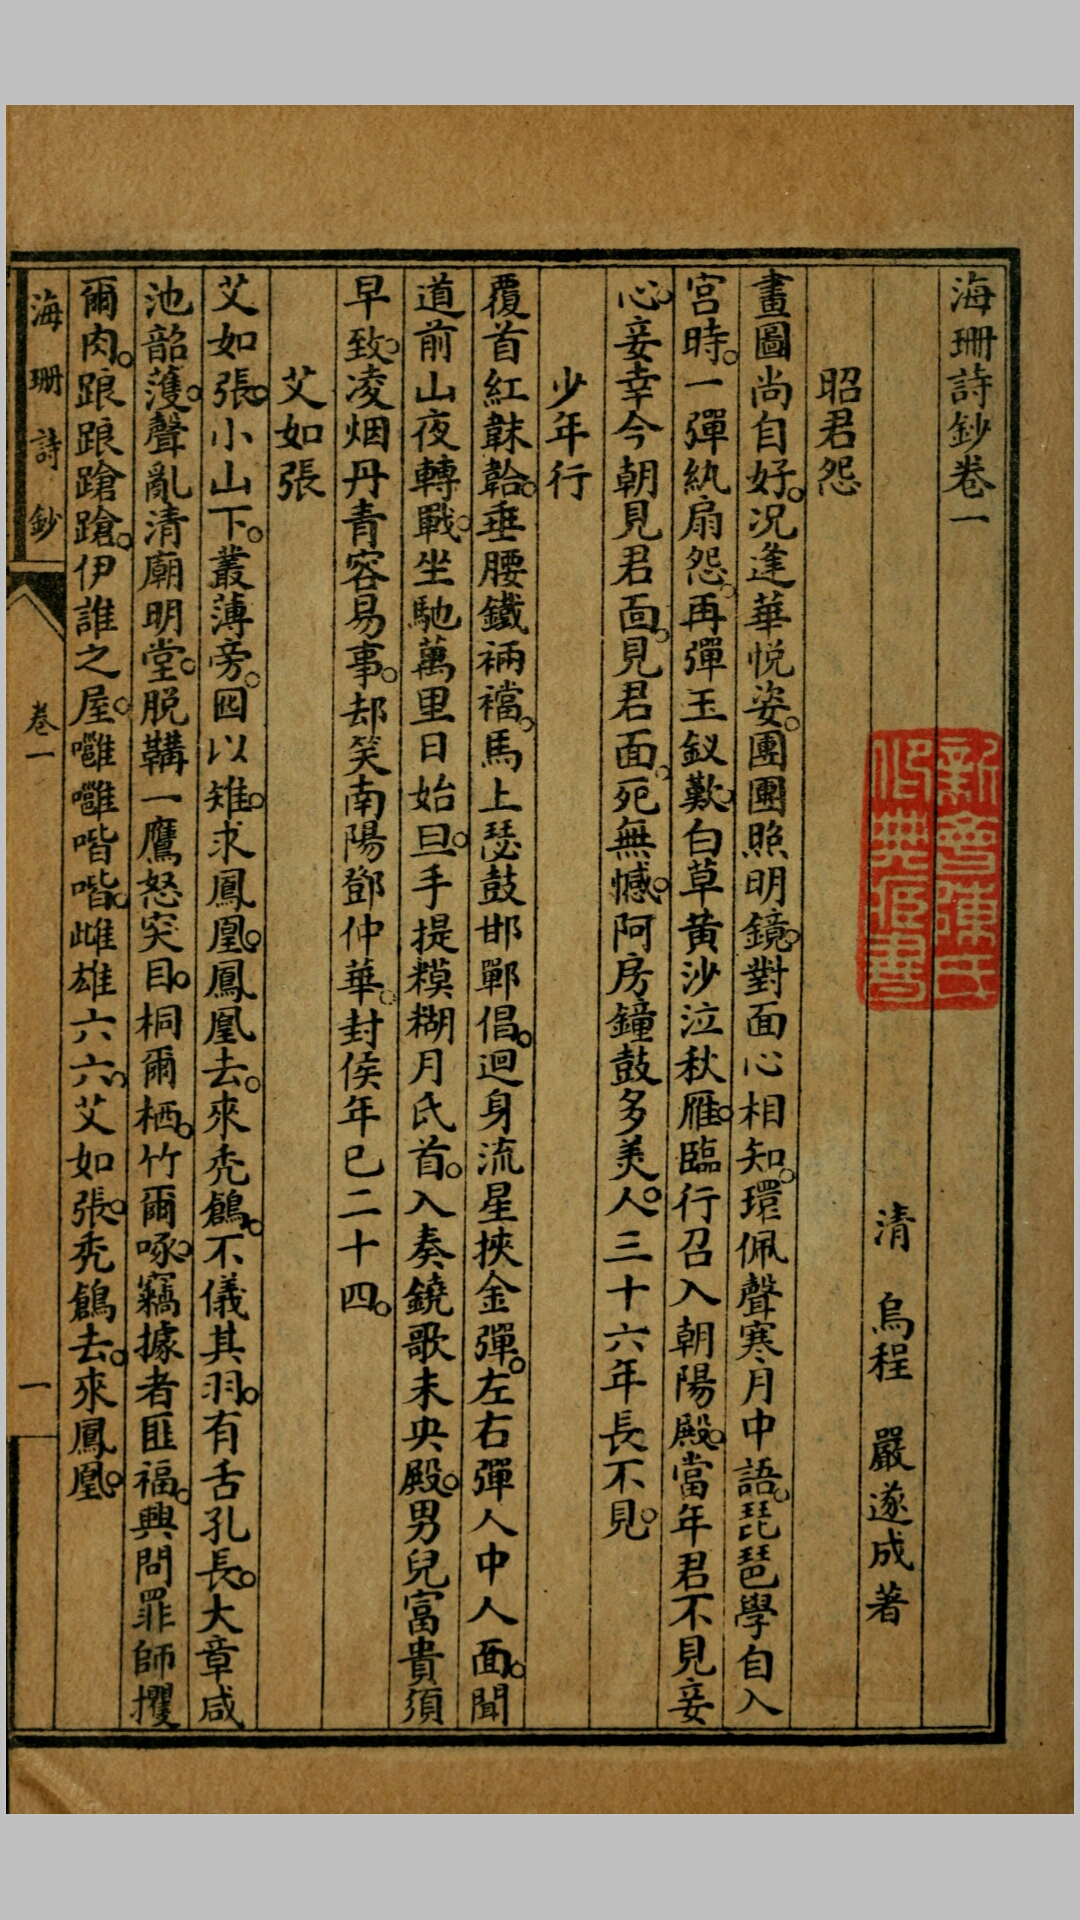 海珊詩鈔卷一
清 烏程 嚴遂成著
昭君怨
畫圖尚自好。況逢華悦姿。團團照明鏡。對面心相知。環佩聲寒月中語。琵琶學自入
宮時。一彈紈扇怨。再彈玉釵歎。白草黄沙泣秋雁。臨行召入朝陽殿。當年君不見妾
心。妾幸今朝見君面。見君面。死無憾。阿房鐘鼓多美人。三十六年長不見。
少年行
覆首紅韎韐。垂腰鐵裲襠。馬上瑟鼓邯鄲倡。迴身流星挾金彈。左右彈人中人面。聞
道前山夜轉戰。坐馳萬里日始旦。手提糢糊月氏首。入奏鐃歌未央殿。男兒富貴須
早致。凌烟丹青容易事。却笑南陽鄧仲華。封侯年已二十四。
艾如張
艾如張。小山下。叢薄旁。囮以雉。求鳳凰。鳳凰去。來禿鶬。不儀其羽。有舌孔長。大章咸
池韶濩。聲亂清廟明堂。脱鞲一鷹怒突目。桐爾栖。竹爾啄。竊據者匪福。興問罪師攫
爾肉。踉踉蹌蹌。伊誰之屋。嘒嘒喈喈。雌雄六六。艾如張。禿鶬去。來鳳凰。
海珊詩鈔
卷一
一
新會陳氏
修典居書